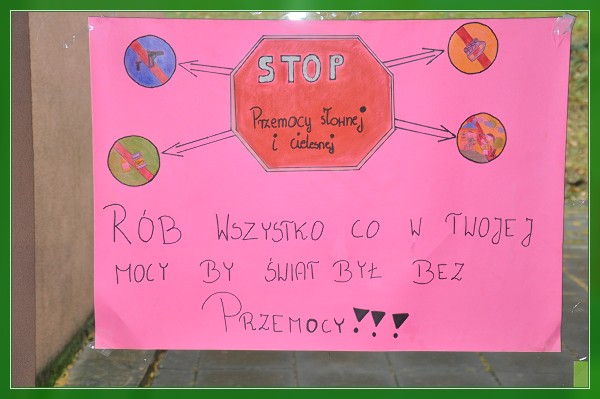 STOP
Przemocy słownej
i cielesnej
RÓB WSZYSTKO CO W TWOJEJ
MOCY BY ŚWIAT BYŁ BEZ
PRZEMOCY!!!